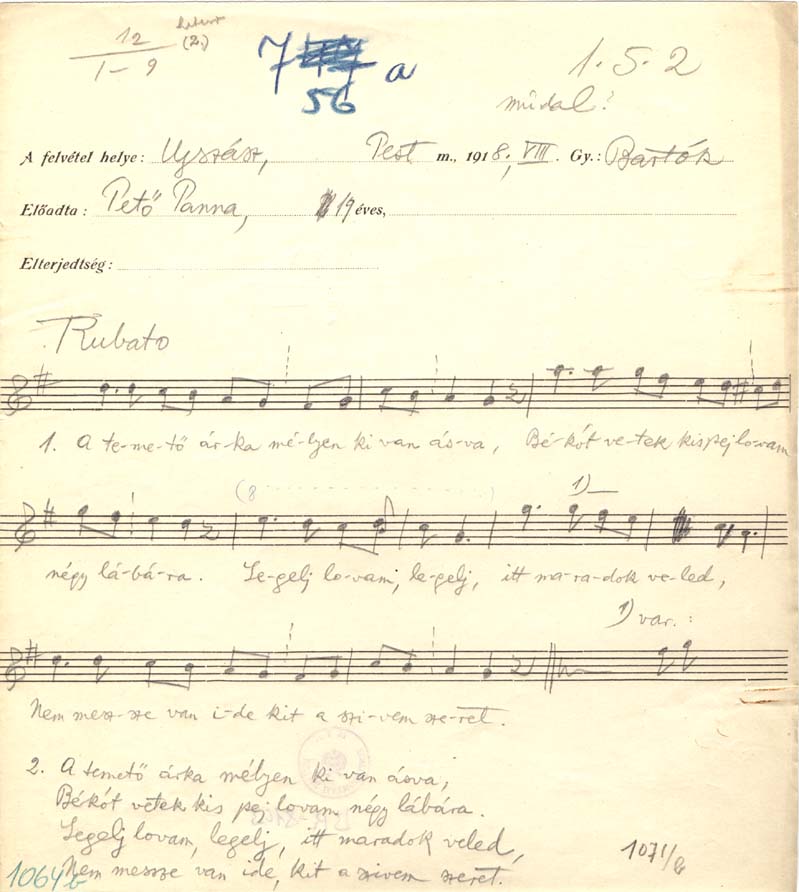 12 (2.)
1-9
7 a
56
1. 5. 2
müdal?
A felvétel helye: Ujszász, Pest m., 1918, VIII. Gy.: Bartók
Előadta: Pető Panna, 19 éves,
Elterjedtség:
Rubato
1. A te-me-tő ár-ka mé-lyen ki van ás-va, Bé-kót ve-tek kis pej lo-vam
(8
1)
négy lá-bá-ra. Le-gelj lo-vam, le-gelj, itt ma-ra-dok ve-led,
1) var.:
Nem mesz-sze van i-de kit a szi-vem sze-ret.
2. A temető árka mélyen ki van ásva,
Békót vetek kis pej lovam négy lábára.
Legelj lovam, legelj, itt maradok veled,
Nem messze van ide, kit a szivem szeret.
1071/b
1064b